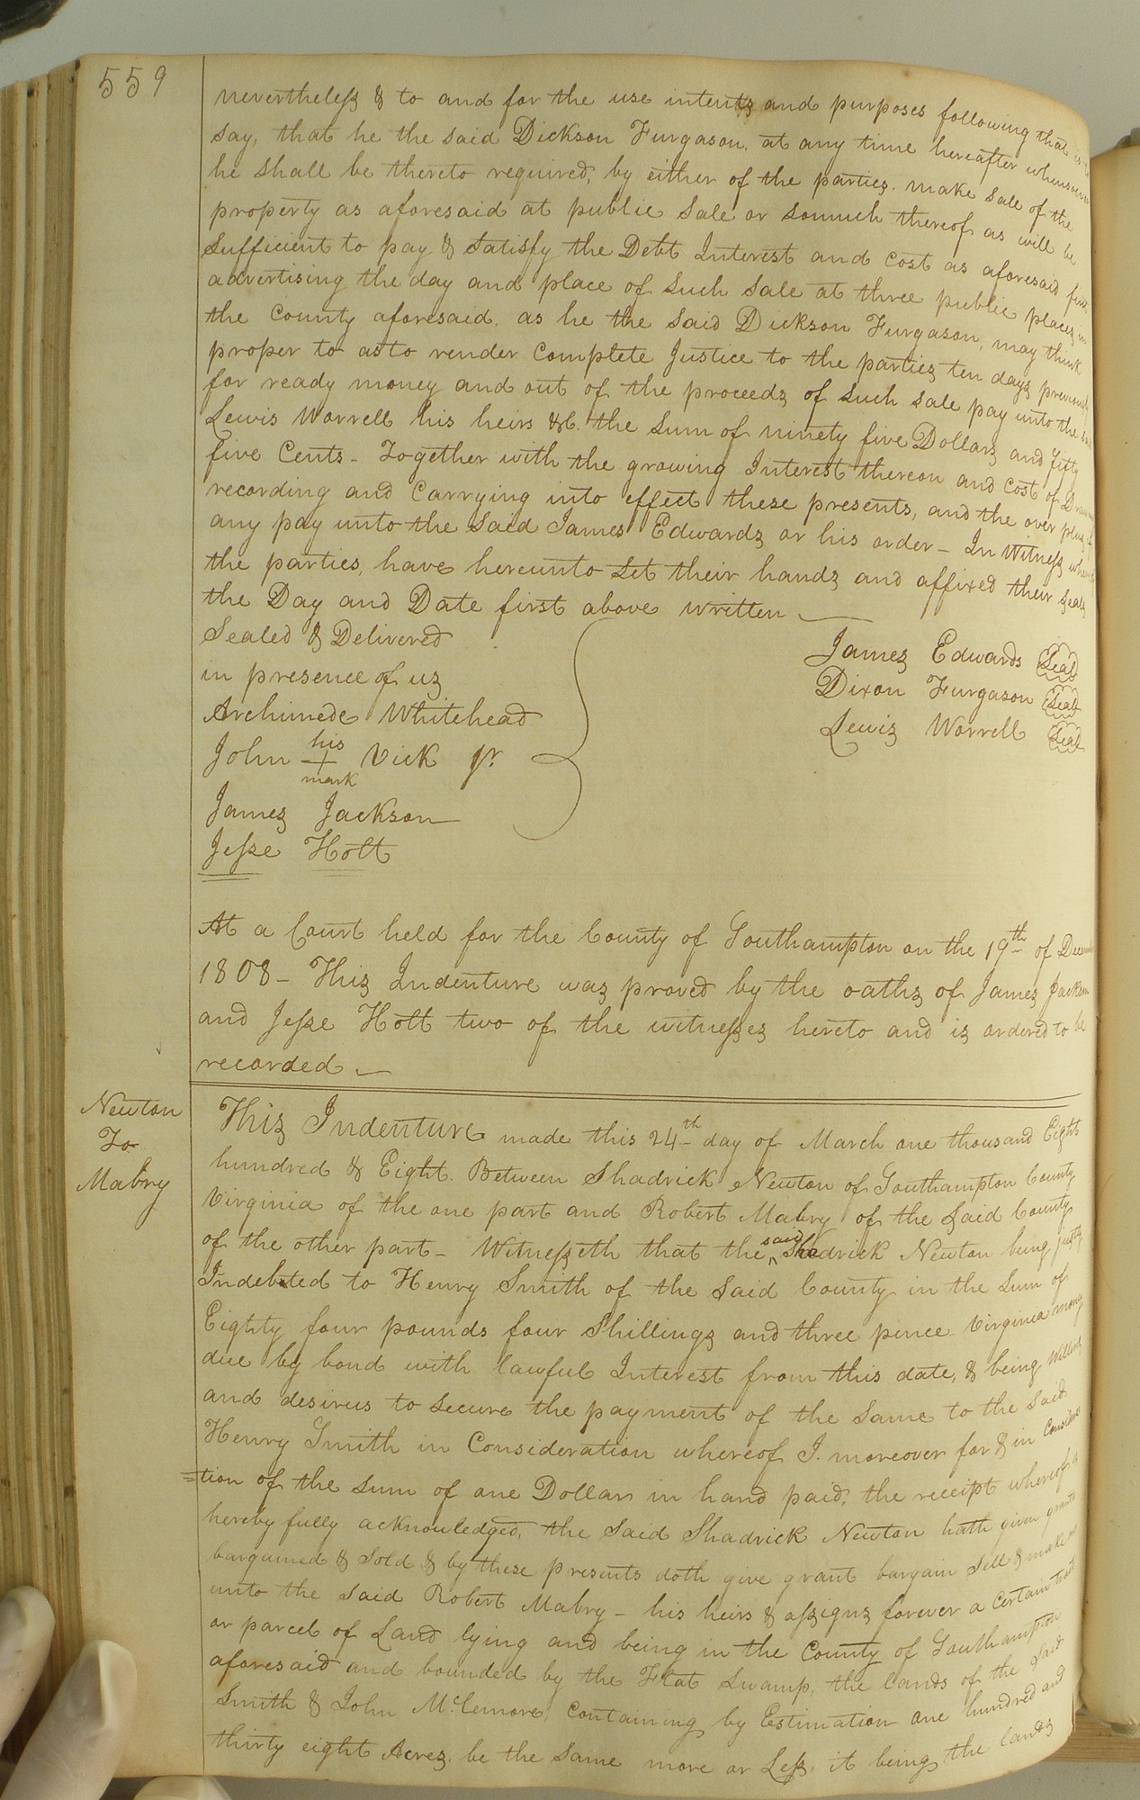 559
nevertheless & to and for the use intents and purposes following that is
say, that he the said Dickson Furgason, at any time hereafter whensoever
he shall be thereto required, by either of the parties. make Sale of the
property as aforesaid at public Sale or somuch thereof as will be
Sufficient to pay & Satisfy the Debt Interest and Cost as aforesaid first
advertising the day and place of such Sale at three public places in
the County aforesaid, as he the Said Dickson Furgason, may think
proper to as to render Complete Justice to the parties ten days previous
for ready money and out of the proceeds of such Sale pay unto the
Lewis Worrell his heirs &c. the Sum of ninety five Dollars and fifty
five Cents - Together with the growing Interest thereon and Cost of
recording and Carrying into effect these presents, and the over plus if
any pay unto the Said James Edwards or his order - In Witness whereof
the parties, have hereunto Set their hands and affixed their Seals
the Day and Date first above written
Sealed & Delivered
in presence of us
Archimede Whitehead
John his + mark Vick Jr.
James Jackson
Jesse Holt
James Edwards Seal
Dixon Furgason Seal
Lewis Worrell Seal
At a Court held for the County of Southampton on the 19th of
1808 - This Indenture was proved by the oaths of James Jackson
and Jesse Holt two of the witnesses hereto and is ordered to be
recorded
Newton
To
Mabry
This Indenture made this 24th day of March one thousand Eight
hundred & Eight. Between Shadrick Newton of Southampton County
Virginia of the one part and Robert Mabry of the Said County
of the other part - Witnesseth that the said Shadrick Newton being justly
Indebted to Henry Smith of the Said County in the Sum of
Eighty four pounds four Shillings and three pence Virginia money
due by bond with lawful Interest from this date, & being Willing
and desirus to secure the payment of the Same to the Said
Henry Smith in Consideration whereof I. moreover for & in Considera
=tion of the Sum of one Dollar in hand paid, the receipt whereof is
hereby fully acknowledged, the Said Shadrick Newton hath given granted
bargained & Sold & by these presents doth give grant bargain Sell & make
unto the Said Robert Mabry - his heirs & assigns forever a Certain tract
or parcel of Land lying and being in the County of Southampton
aforesaid and bounded by the Flat Swamp, the lands of the Said
Smith & John McLemore, Containing by Estimation one hundred and
thirty eight Acres. be the Same more or Less. it being the lands